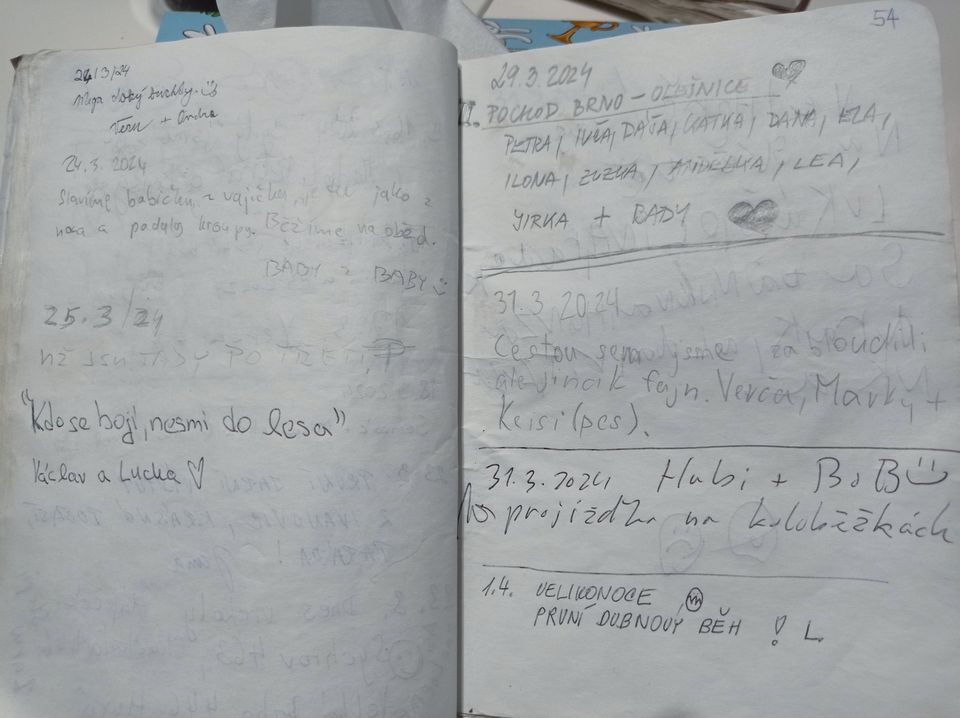 24/3/24
Mega dobrý
+ Ondra
24.3.2024
Slavíme babičku z vajíčka, je tu jako z
nosa a padaly kroupy. Běžíme na oběd.
BABY
25.3/24
JSM TADY PO TŘETÍ
"Kdo se bojí, nesmí do lesa"
Václav a Lucka ♡
54
29.3.2024
II. POCHOD BRNO – OLEJNICE
PETRA, IVČA, DÁŠA, KATKA, DANA,
ILONA, ZUZKA, LEA,
JIRKA + BADY
31.3.2024
Cestou sem jsme zabloudili
ale jinak fajn. Verča, Marky +
Keisi (pes).
31.3.2024 Hubi + BoB
projížďka na koloběžkách
1.4. VELIKONOCE
PRVNÍ DUBNOVÝ BĚH ! L.